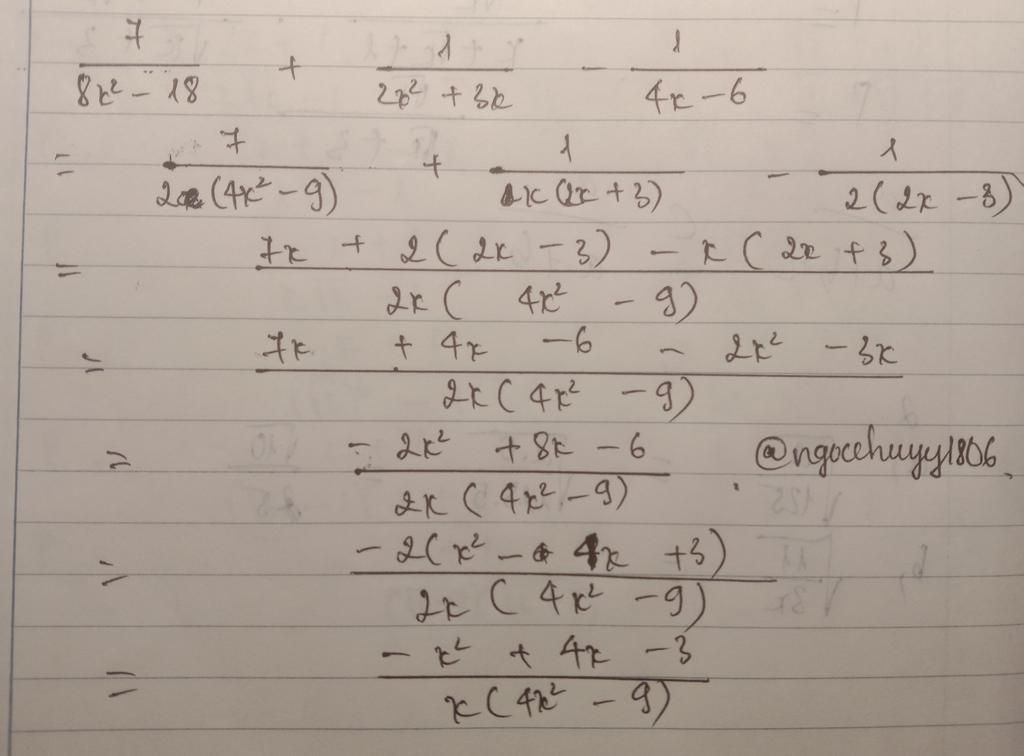 7/(8x² - 18) + 1/(2x² + 3x) - 1/(4x - 6)
= 7/(2(4x² - 9)) + 1/(x(2x + 3)) - 1/(2(2x - 3))
= (7x + 2(2x - 3) - x(2x + 3))/(2x(4x² - 9))
= (7x + 4x - 6 - 2x² - 3x)/(2x(4x² - 9))
= (-2x² + 8x - 6)/(2x(4x² - 9)) @ngocchuyy1806
= (-2(x² - 4x + 3))/(2x(4x² - 9))
= (-x² + 4x - 3)/(x(4x² - 9))